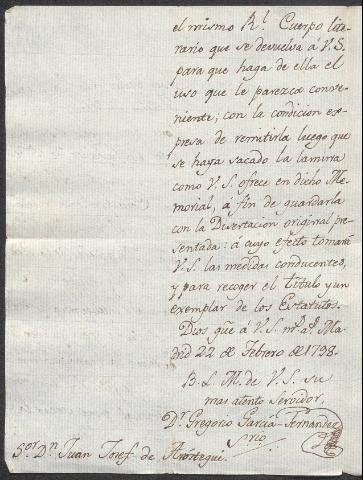 el mismo Rl. Cuerpo lite-
rario que se devuelva á V.S.
para que haga de ella el
uso que le parezca conve-
niente; con la condicion ex-
presa de remitirla luego que
se haya sacado la lamina
como V.S. ofrece en dicho Me-
morial, á fin de guardarla
con la Disertacion original pre-
sentada: á cuyo efecto tomará
V.S. las medidas conducentes,
y para recoger el titulo y un
exemplar de los Estatutos.
Dios gũe á V.S. ms. as. Ma-
drid 22 de Febrero de 1798.
B. L. M. de V.S. su
mas atento servidor,
Dr. Gregorio Garcia Fernandez
Srio
Sor. Dn. Juan Josef de Arostegui.